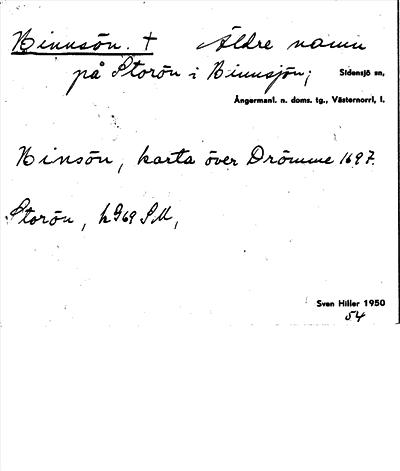 Binnsön. † Äldre namn
på Storön i Binnsjön, Sidensjö sn,
Ångermanl. n. doms. tg., Västernorrl. l.
Binsön, karta över Drömme 1697.
Storön, h969 SM,
Sven Hiller 1950
54